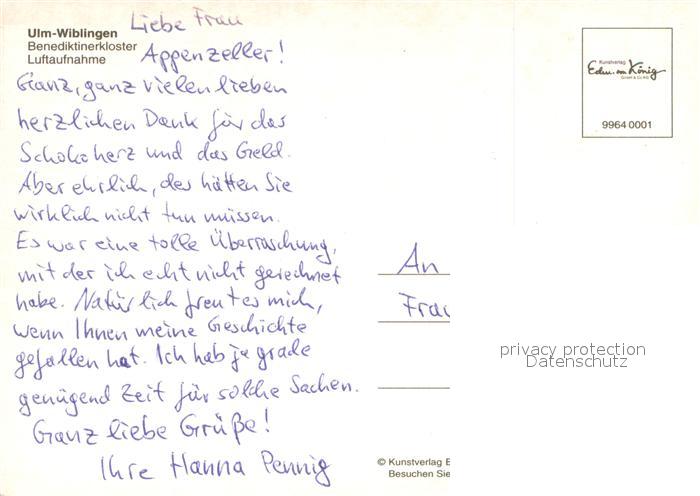 Liebe Frau
Ulm-Wiblingen
Benediktinerkloster
Luftaufnahme
Appenzeller!
Ganz, ganz vielen lieben
herzlichen Dank für das
Schokoherz und das Geld.
Aber ehrlich, des hätten Sie
wirklich nicht tun müssen.
Es war eine tolle Überraschung,
mit der ich echt nicht gerechnet
habe. Natürlich freut es mich,
wenn Ihnen meine Geschichte
gefallen hat. Ich hab ja grade
genügend Zeit für solche Sachen.
Ganz liebe Grüße!
Ihre Hanna Pennig
Kunstverlag
Edm. von König
GmbH & Co KG
9964 0001
An
Frau
privacy protection
Datenschutz
© Kunstverlag E
Besuchen Sie